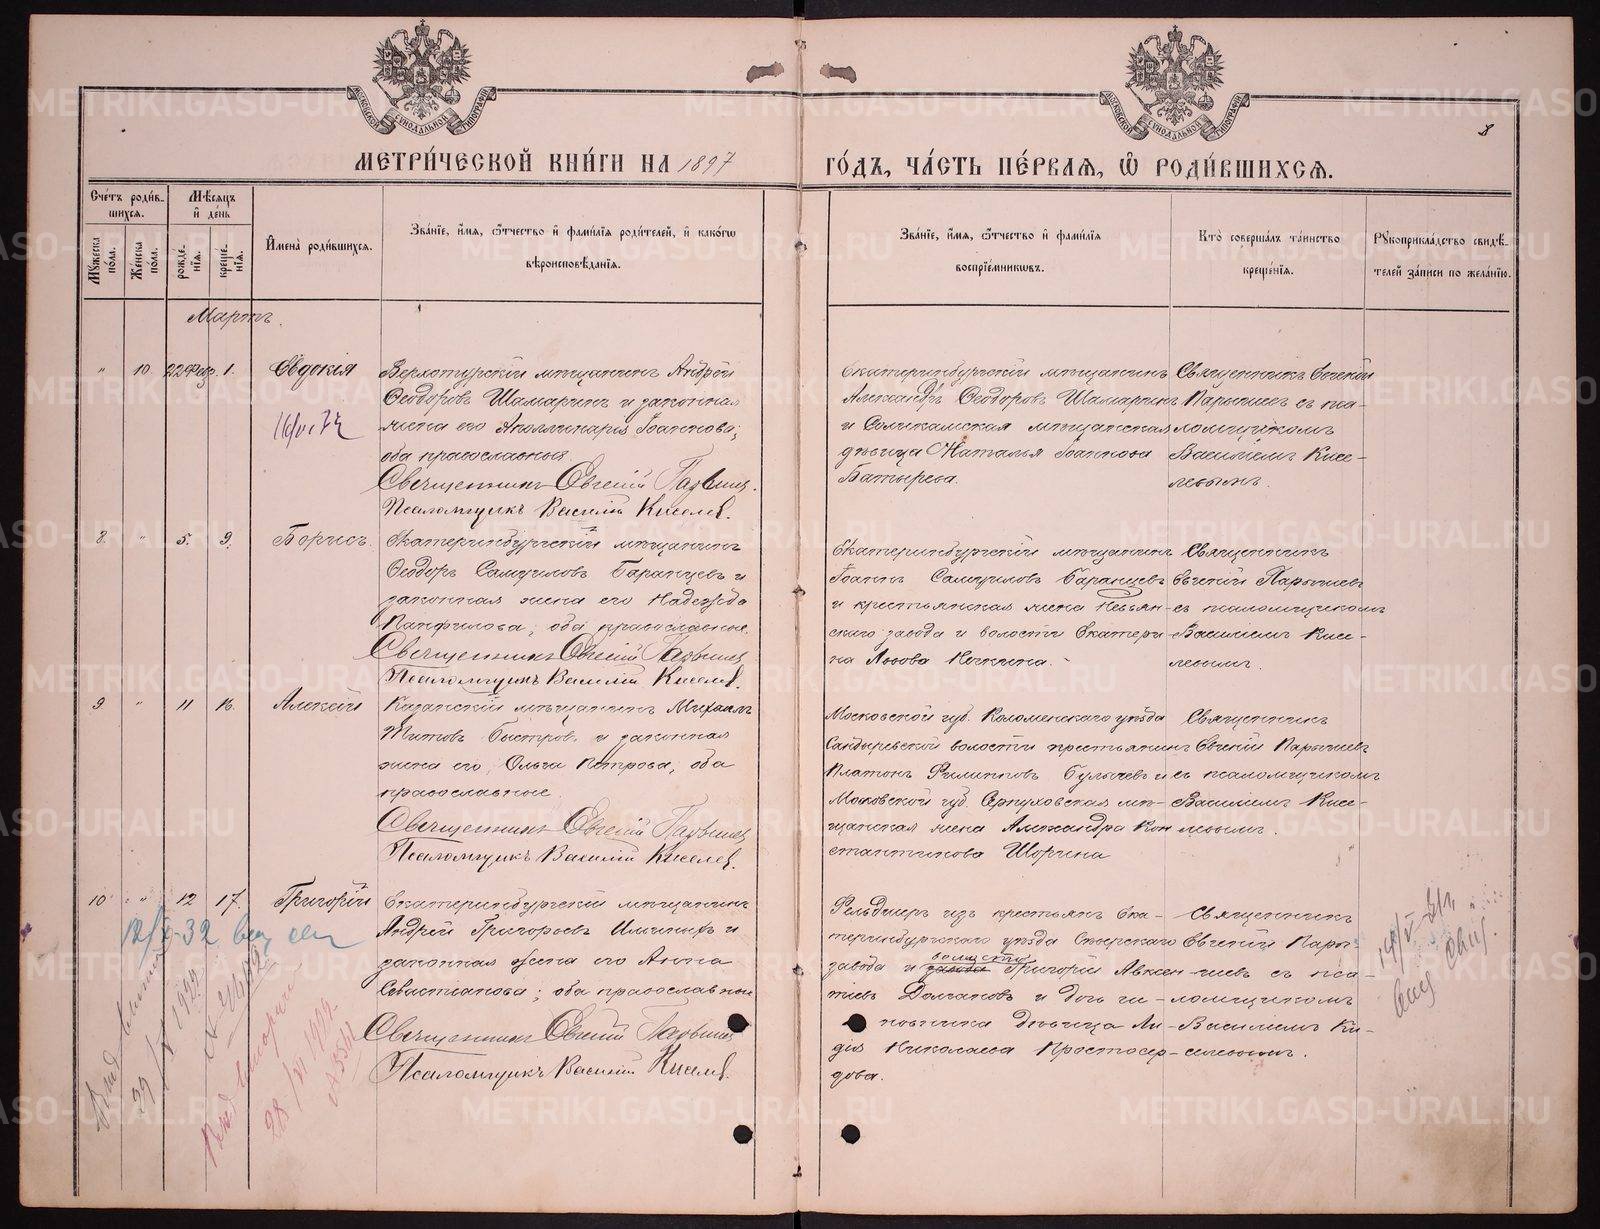 МОСКОВСКОЙ СѴНОДАЛЬНОЙ ТИПОГРАФІИ
МОСКОВСКОЙ СѴНОДАЛЬНОЙ ТИПОГРАФІИ
8
МЕТРИ́ЧЕСКОЙ КНИ́ГИ НА 1897
ГО́ДЪ, ЧА́СТЬ ПЕ́РВАѦ, Ѽ РОДИ́ВШИХСѦ.
Сче́тъ роди́в-
шихсѧ.
Мꙋжеска по́ла.
Же́нска по́ла.
Мѣ́сѧцъ
и҆ де́нь
рожде́-
нїѧ.
креще́-
нїѧ.
И҆мена̀ роди́вшихсѧ.
Зва́нїе, и҆́мѧ, ѻ҆́тчество и҆ фами́лїѧ роди́телей, и҆ како́гѡ
вѣроисповѣ́данїѧ.
Зва́нїе, и҆́мѧ, ѻ҆́тчество и҆ фами́лїѧ
воспрїе́мникѡвъ.
Кто̀ соверша́лъ та́инство
креще́нїѧ.
Рꙋкоприкла́дство свидѣ́-
телей за́писи по жела́нїю.
Мартъ.
" 10 22 Февр. 1. Евдокія
Верхотурскій мѣщанинъ Андрей
Ѳеодоровъ Шамаринъ и законная
жена его Аполлинарія Іоаннова;
оба православные.
Священникъ Евгеній Парышев.
Псаломщикъ Василій Киселев.
Екатеринбургскій мѣщанинъ
Александръ Ѳеодоровъ Шамаринъ
и Соликамская мѣщанская
дѣвица Наталья Іоаннова
Батырева.
Священникъ Евгеній
Парышевъ съ пса-
ломщикомъ
Василіемъ Кисе-
левымъ.
8. " 5. 9. Борисъ.
Екатеринбургскій мѣщанинъ
Ѳеодоръ Самуиловъ Баранцевъ и
законная жена его Надежда
Панфилова; оба православные.
Священникъ Евгеній Парышев
Псаломщикъ Василій Киселев.
Екатеринбургскій мѣщанинъ
Іоаннъ Самуиловъ Баранцевъ
и крестьянская жена Невьян-
скаго завода и волости Екатери-
на Львова
Священникъ
Евгеній Парышевъ
съ псаломщикомъ
Василіемъ Кисе-
левымъ.
9 " 11 16. Алексій
Казанскій мѣщанинъ Михаилъ
Титовъ Быстровъ и законная
жена его, Ольга Петрова; оба
православные.
Священникъ Евгеній Парышев
Псаломщикъ Василій Киселев.
Московской губ. Коломенскаго уѣзда
Сандыревской волости крестьянинъ
Платонъ Филипповъ Булычевъ и
Московской губ. Серпуховская мѣ-
щанская жена Александра Кон
стантинова Шорина
Священникъ
Евгеній Парышевъ
съ псаломщикомъ
Василіемъ Кисе-
левымъ.
10 " 12 17. Григорій
Екатеринбургскій мѣщанинъ
Андрей Григорьевъ и
законная жена его Анна
Севастіанова; оба православные
Священникъ Евгеній Парышев
Псаломщикъ Василій Киселев.
Фельдшеръ изъ крестьянъ Ека-
теринбургскаго уѣзда Сысертскаго
завода и волости Григорій Авксен-
тіевъ Долгановъ и дочь чи-
новника дѣвица Ли-
дія Николаева Простосер-
дова.
Священникъ
Евгеній Пары-
шевъ съ пса-
ломщикомъ
Василіемъ Ки-
селевымъ.
28/VI 1902